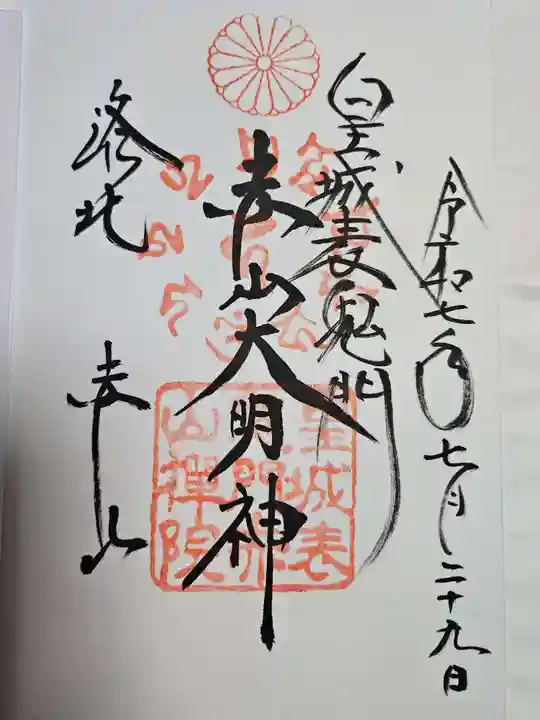 令和七年七月二十九日
皇城表鬼門
赤山大明神
洛北
赤山
皇城表
門
山禅院